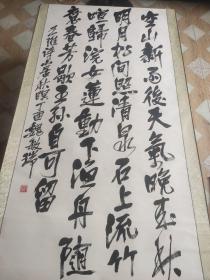 空山新雨後天氣晚來秋
明月松間照清泉石上流竹
喧歸浣女蓮動下漁舟隨
意春芳歇王孫自可留
王維詩山居秋暝丁酉